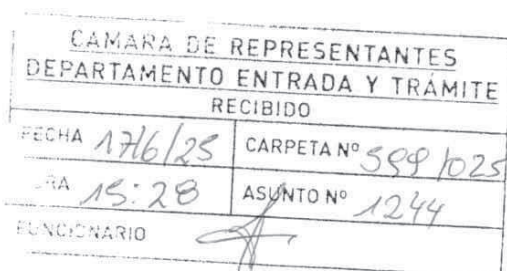 CAMARA DE REPRESENTANTES
DEPARTAMENTO ENTRADA Y TRÁMITE
RECIBIDO
FECHA 17/6/25 CARPETA Nº 599/025
RA 15:28 ASUNTO Nº 1244
FUNCIONARIO